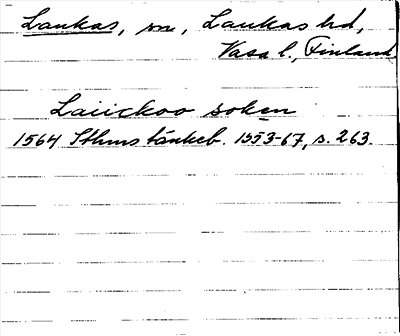 Laukas, sn, Laukas hd,
Vasa l., Finland
Laiickoo soken
1564 Sthms tänkeb. 1553-67, s. 263.